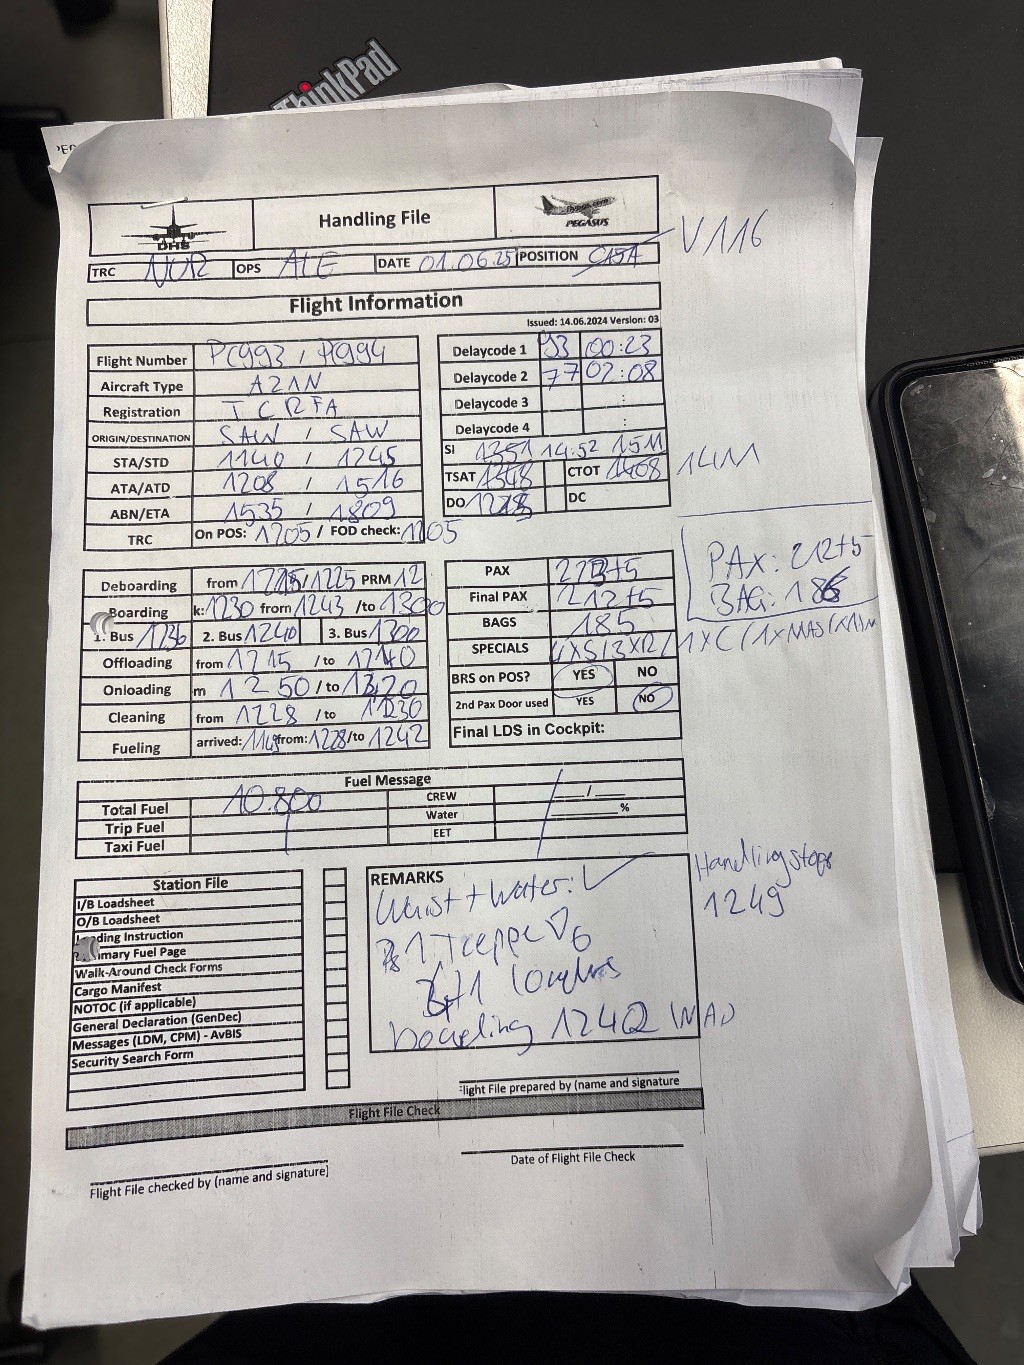 ThinkPad
DHS
Handling File
flypgs.com
PEGASUS
V116
TRC NUR OPS ALE DATE 01.06.25 POSITION C15A
Flight Information
Issued: 14.06.2024 Version: 03
Flight Number PC993 / PC994
Aircraft Type A21N
Registration TCRFA
ORIGIN/DESTINATION SAW / SAW
STA/STD 1140 / 1245
ATA/ATD 1208 / 1516
ABN/ETA 1535 / 1809
TRC On POS: 1205 / FOD check: 1205
Delaycode 1 93 00:23
Delaycode 2 77 02:08
Delaycode 3 :
Delaycode 4 :
SI 1351 14:52 1511
TSAT 1348 CTOT 1408 1411
DO DC
Deboarding from /1225 PRM 12
Boarding k: 1230 from 1243 /to 1300
1. Bus 1236 2. Bus 1240 3. Bus 1300
Offloading from 1215 /to 1240
Onloading m 1250 /to 1320
Cleaning from 1228 /to 1230
Fueling arrived: 1148 from: 1228 /to 1242
PAX
Final PAX 212+5
BAGS 185
SPECIALS
BRS on POS? YES NO
2nd Pax Door used YES NO
Final LDS in Cockpit:
PAX: 212+5
BAG: 186
Fuel Message
Total Fuel 10.800 CREW /
Trip Fuel Water %
Taxi Fuel EET
Station File
I/B Loadsheet
O/B Loadsheet
Loading Instruction
Primary Fuel Page
Walk-Around Check Forms
Cargo Manifest
NOTOC (if applicable)
General Declaration (GenDec)
Messages (LDM, CPM) - AvBIS
Security Search Form
REMARKS
+ Water: ✓
1 Treppe V6
boarding 1242
Handlingstop
1249
Flight File prepared by (name and signature
Flight File Check
Flight File checked by (name and signature)
Date of Flight File Check